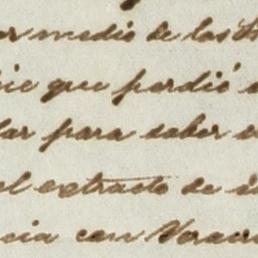 or medio de las
que perdió
lar para saber
el extracto de
cia con Verac